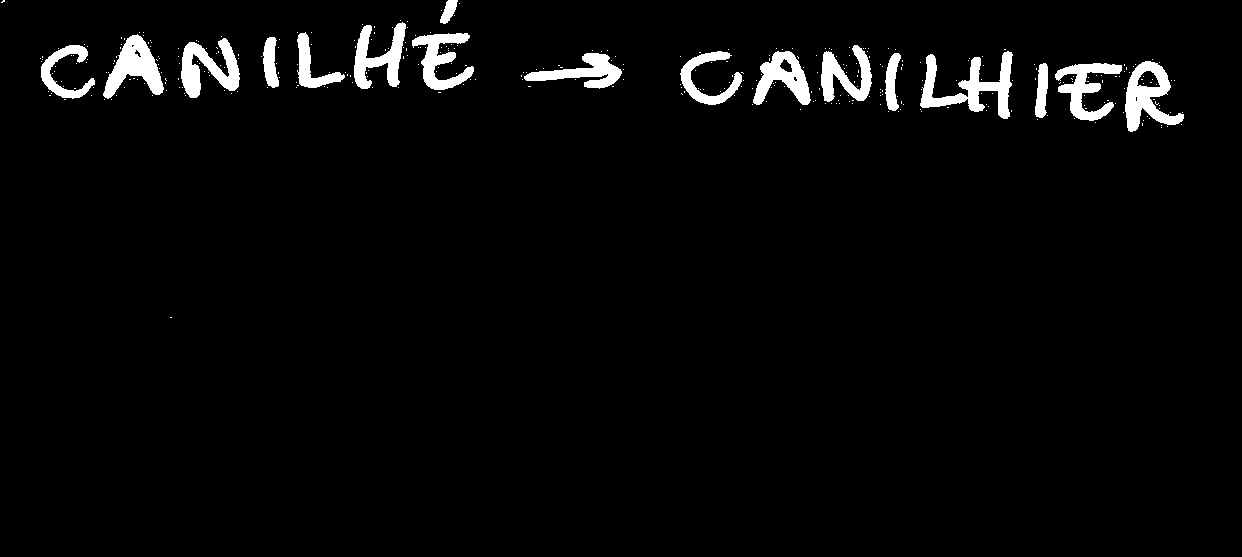 CANILHÉ → CANILHIER